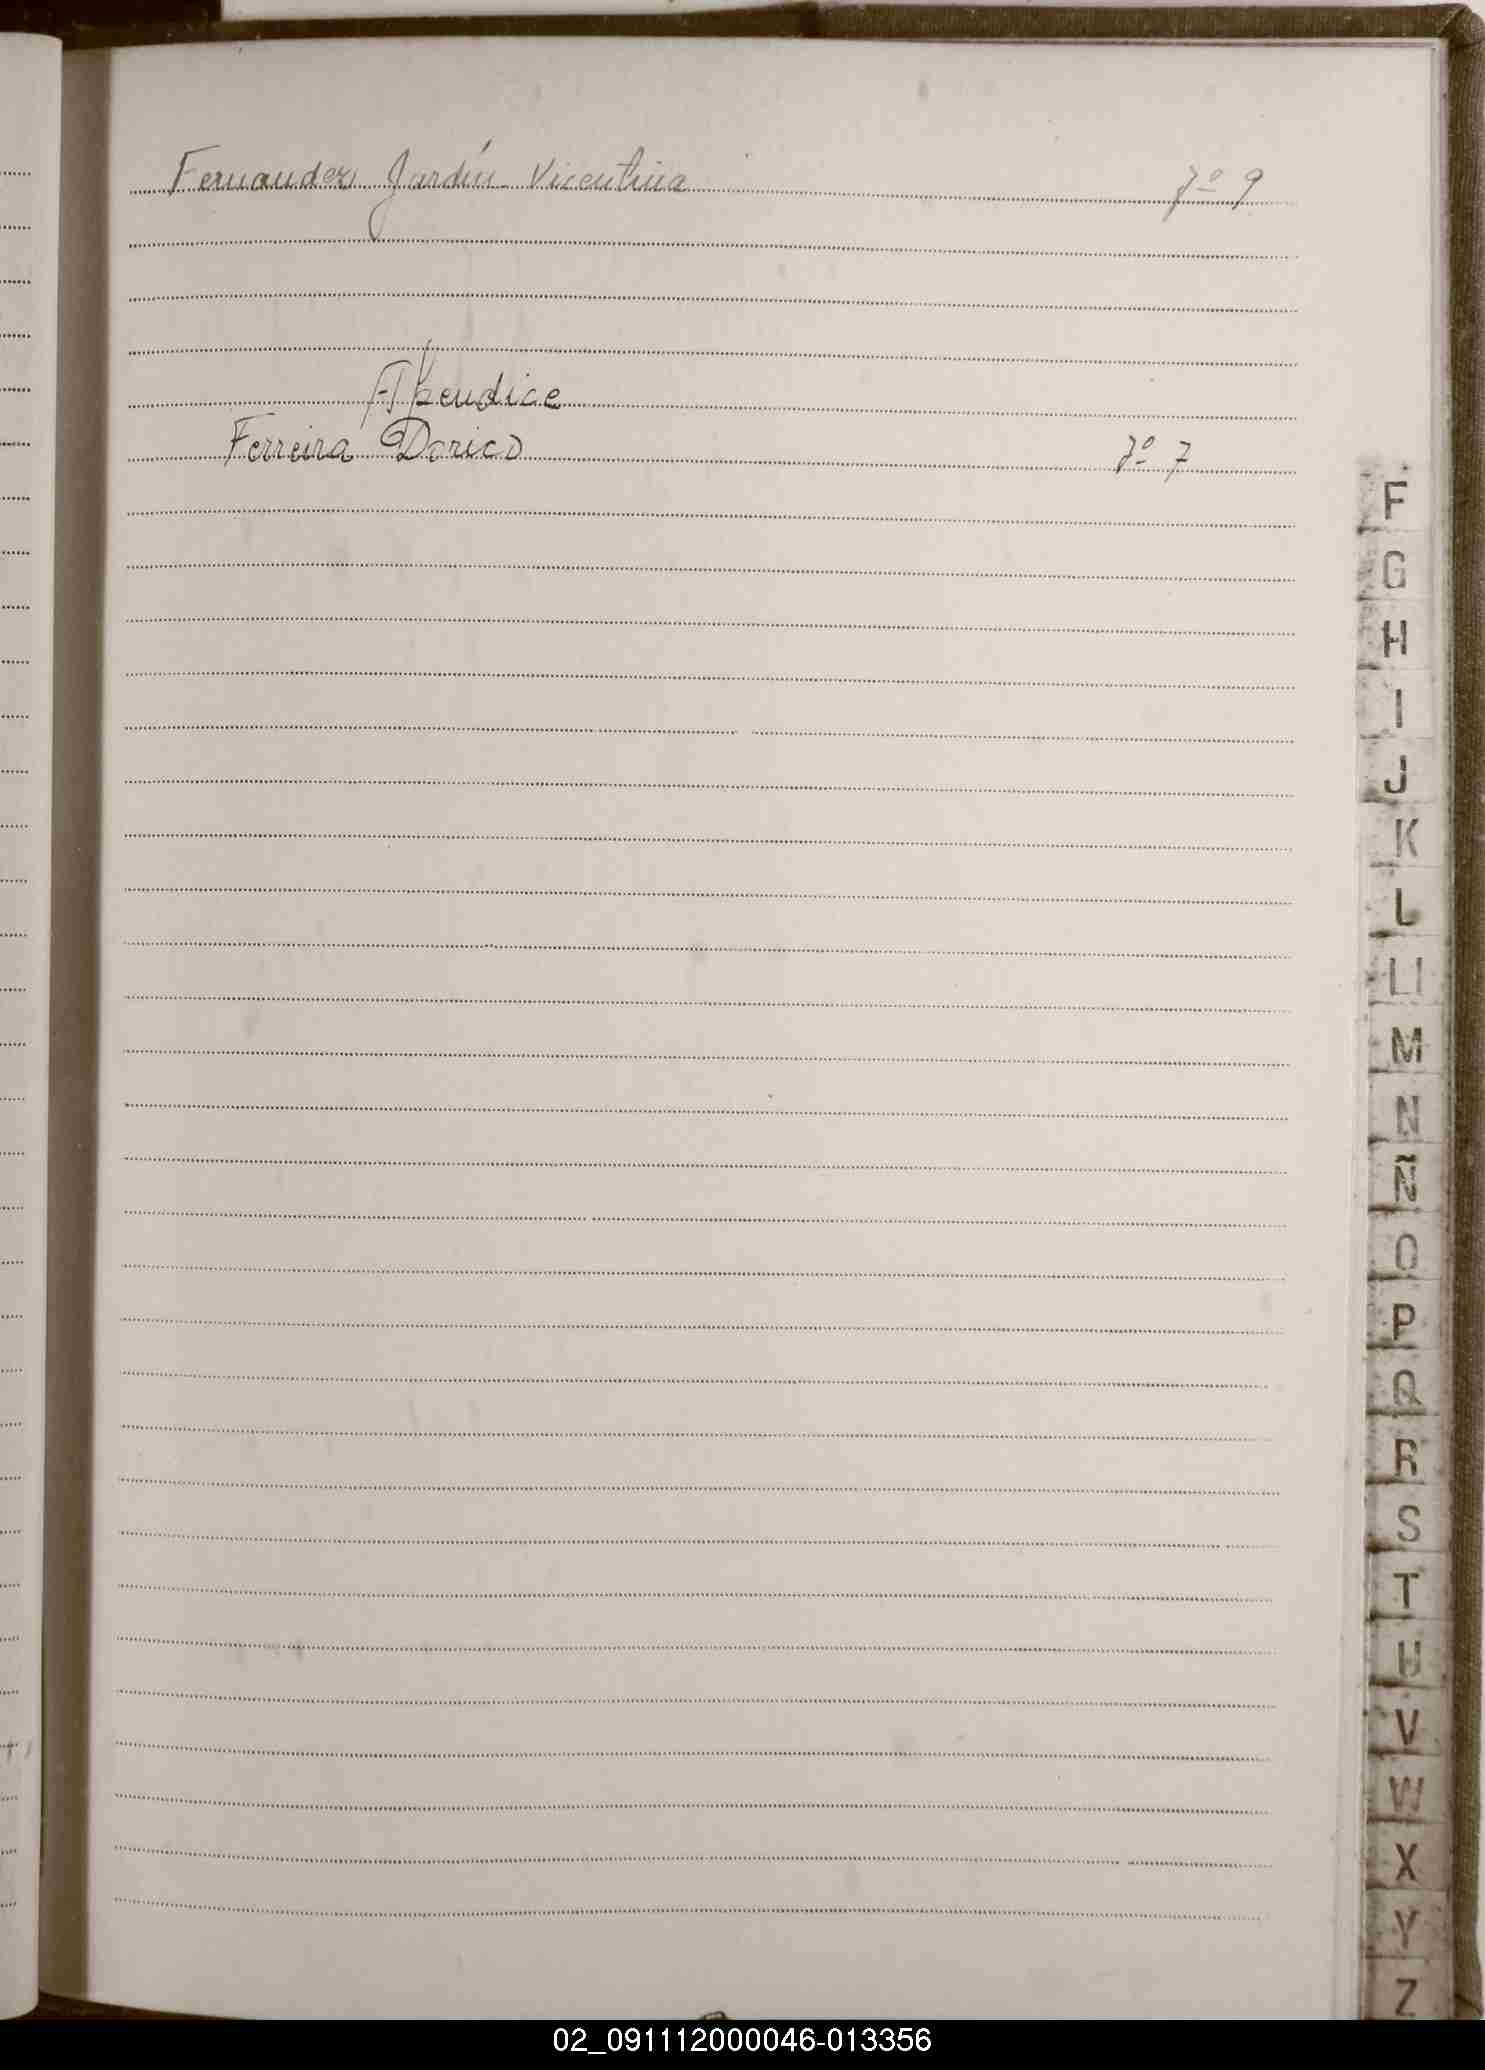 Fernandez Jardín Vicentina 7º 9
Apendice
Ferreira Dorico 7º 7
F
G
H
I
J
K
L
Ll
M
N
Ñ
O
P
Q
R
S
T
U
V
W
X
Y
Z
02_091112000046-013356